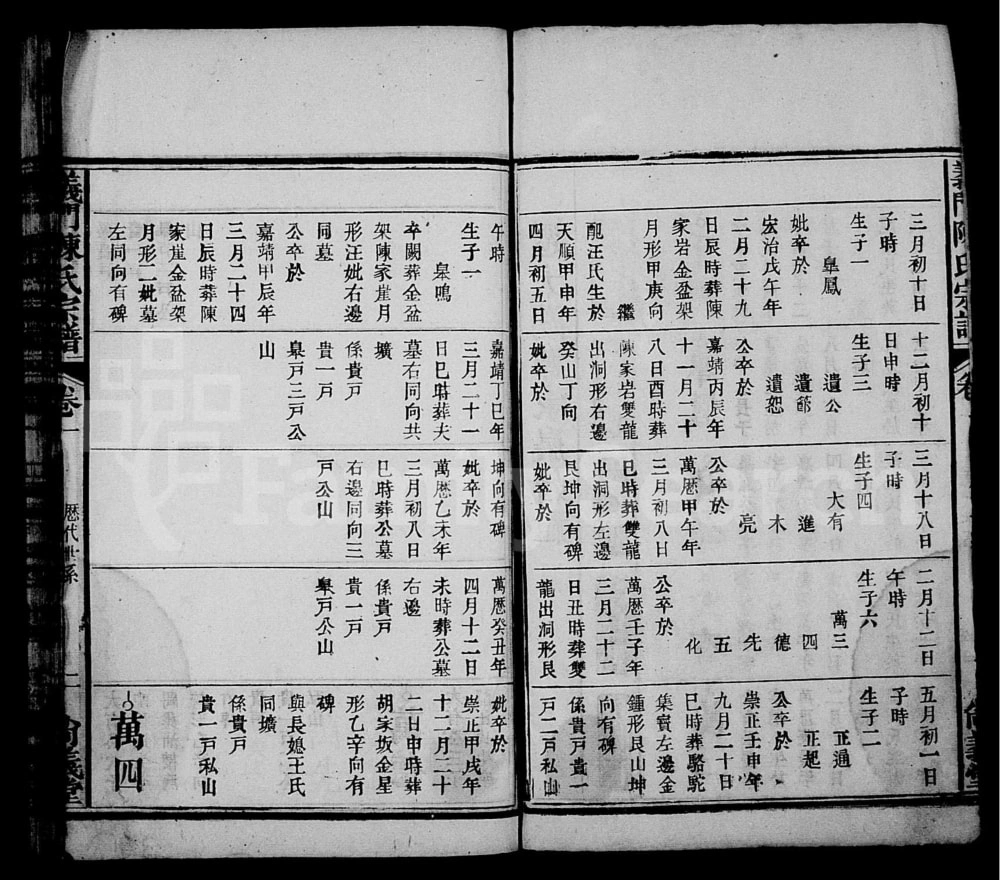 義門陳氏宗譜
卷
尙義堂
三月初十日
子時
生子一
臯鳳
妣卒於
宏治戊午年
二月二十九
日辰時葬陳
家岩金盆架
月形甲庚向
繼
配汪氏生於
天順甲申年
四月初五日
十二月初十
日申時
生子三
遺公
遺爵
遺恕
公卒於
嘉靖丙辰年
十一月二十
八日酉時葬
陳家岩雙龍
出洞形右邊
癸山丁向
妣卒於
三月十八日
子時
生子四
大有
進
木
亮
公卒於
萬厯甲午年
三月初八日
巳時葬雙龍
出洞形左邊
艮坤向有碑
妣卒於
二月十二日
午時
生子六
萬三
四
德
先
五
化
公卒於
萬厯壬子年
三月二十二
日丑時葬雙
龍出洞形艮
五月初一日
子時
生子二
正通
正起
公卒於
崇正壬申年
九月二十日
巳時葬駱駝
集賓左邊金
鍾形艮山坤
向有碑
係貴戸貴一
戸二戸私山
午時
生子一
臯鳴
卒闕葬金盆
架陳家崖月
形汪妣右邊
同墓
公卒於
嘉靖甲辰年
三月二十四
日辰時葬陳
家崖金盆架
月形二妣墓
左同向有碑
嘉靖丁巳年
三月二十一
日巳時葬夫
墓右同向共
壙
係貴戸
貴一戸
臯戸三戸公
山
坤向有碑
妣卒於
萬厯乙未年
三月初八日
巳時葬公墓
右邊同向三
戸公山
萬厯癸丑年
四月十二日
未時葬公墓
右邊
係貴戸
貴一戸
臯戸公山
妣卒於
崇正甲戌年
十二月二十
二日申時葬
胡家坂金星
形乙辛向有
碑
與長媳王氏
同壙
係貴戸
貴一戸私山
萬四
義門陳氏宗譜
卷一
厯代世系
二
尙義堂